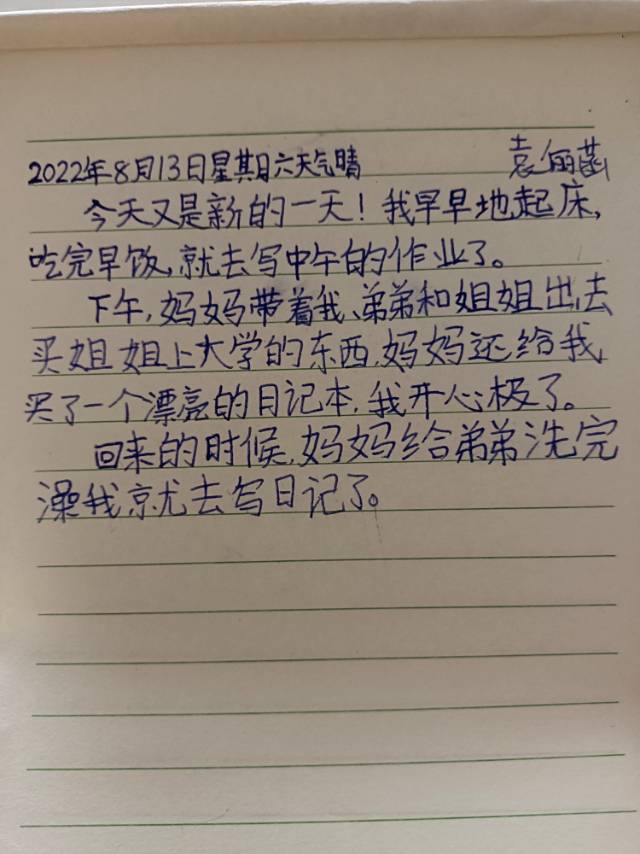 2022年8月13日星期六天气晴 袁俪菡
今天又是新的一天！我早早地起床，
吃完早饭，就去写中午的作业了。
下午，妈妈带着我、弟弟和姐姐出去
买姐姐上大学的东西，妈妈还给我
买了一个漂亮的日记本，我开心极了。
回来的时候，妈妈给弟弟洗完
澡我就去写日记了。